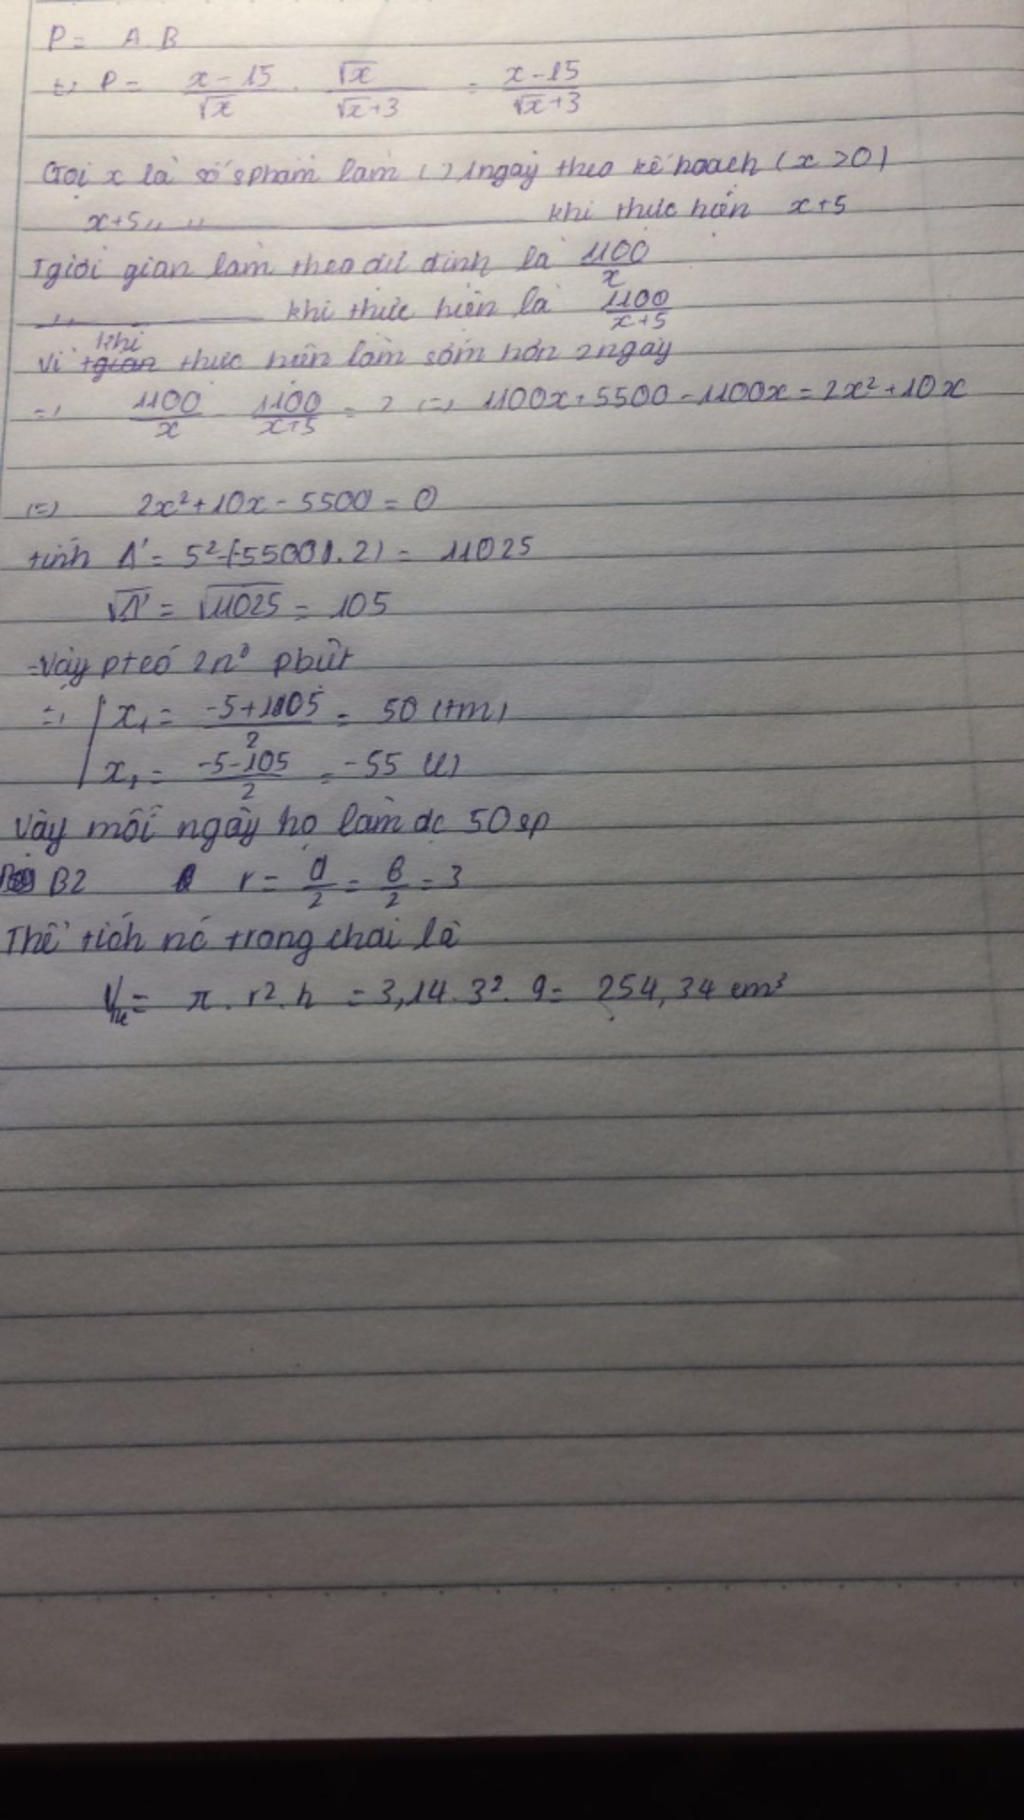 P = A.B
=> P = x-15/√x . √x/√x+3 = x-15/√x+3
Gọi x là số sphẩm làm () 1 ngày theo kế hoạch (x>0)
x+5 ,, ,, khi thực hiện x+5
Tgiời gian làm theo dự định là 1100/x
,, khi thức hiện là 1100/x+5
Vì khi thực hiện làm sớm hơn 2 ngày
=> 1100/x - 1100/x+5 = 2 (=) 1100x+5500-1100x=2x²+10x
(=) 2x²+10x-5500=0
tính Δ' = 5²-(-5500).2) = 11025
√Δ' = √11025 = 105
-Vậy pt có 2n⁰ pbiệt
=> x₁ = -5+105/2 = 50 (tm)
x₂ = -5-105/2 = -55 (l)
Vậy mỗi ngày họ làm dc 50sp
B2 r = d/2 = 6/2 = 3
Thể tích nc trong chai là
V = π.r².h = 3,14.3².9 = 254,34 cm³